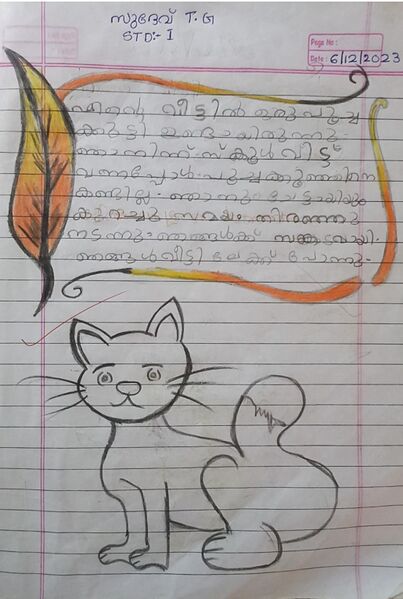 സുദേവ് T.G
STD:- I
Page No :
Date : 6/12/2023
എന്റെ വീട്ടിൽ ഒരു പൂച്ച
ക്കുട്ടി ഉണ്ടായിരുന്നു.
ഞാനിന്ന് സ്കൂൾ വിട്ട്
വന്നപ്പോൾ പൂച്ചക്കുഞ്ഞിനെ
കണ്ടില്ല. ഞാനും ചേട്ടായിയും
കുറച്ചു സമയം തിരഞ്ഞു
നടന്നു. ഞങ്ങൾക്ക് സങ്കടമായി.
ഞങ്ങൾ വീട്ടി ലേക്ക് പോന്നു.